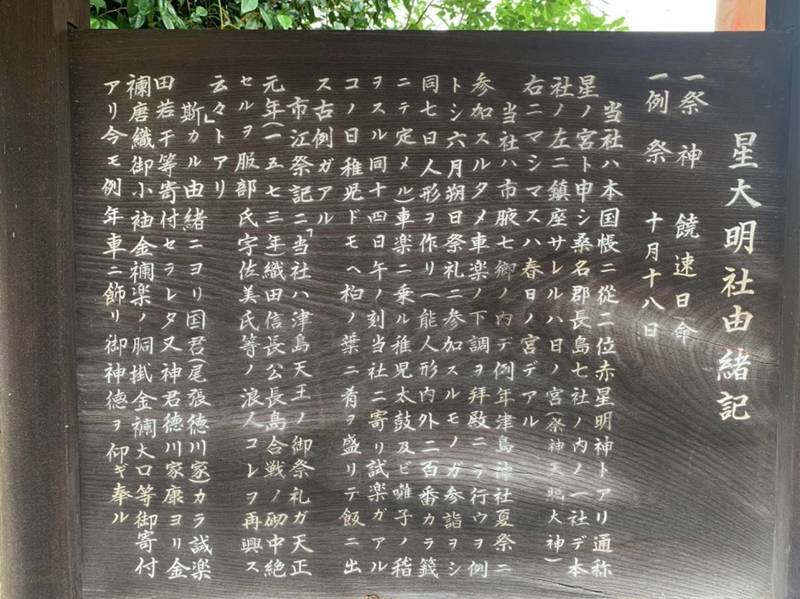 星大明社由緒記
一祭神　饒速日命
一例祭　十月十八日
当社ハ本国帳ニ從二位赤星明神トアリ通称
星ノ宮ト申シ桑名郡長島七社ノ内ノ一社デ本
社ノ左ニ鎮座サレルハ日ノ宮(祭神天照大神)
右ニマシマスハ春日ノ宮デアル
当社ハ市腋七郷ノ内デ例年津島神社夏祭ニ
参加スルタメ車楽ノ下調ヲ拝殿ニテ行ウヲ例
トシ六月朔日祭礼ニ参加スルモノガ参詣ヲシ
同七日人形ヲ作リ(能人形内外二百番カラ籤
ニテ定メル)車楽ニ乗ル稚児太鼓及ビ囃子ノ稽
ヲスル同十四日午ノ刻当社ニ寄リ試楽ガアル
コノ日稚児ドモヘ柏ノ葉ニ肴ヲ盛リテ飯ニ出
ス古例ガアル
市江祭記ニ「当社ハ津島天王ノ御祭礼ガ天正
元年(一五七三年)織田信長公長島合戦ノ砌中絶
セルヲ服部氏宇佐美氏等ノ浪人コレヲ再興ス
云々トアリ
斯」カル由緒ニヨリ国君(尾張徳川家)カラ試楽
田若干等寄付セラレタ又神君徳川家康ヨリ金
襴唐織御小袖金襴楽ノ胴掛金襴大口等御寄付
アリ今モ例年車ニ飾リ御神徳ヲ仰ギ奉ル